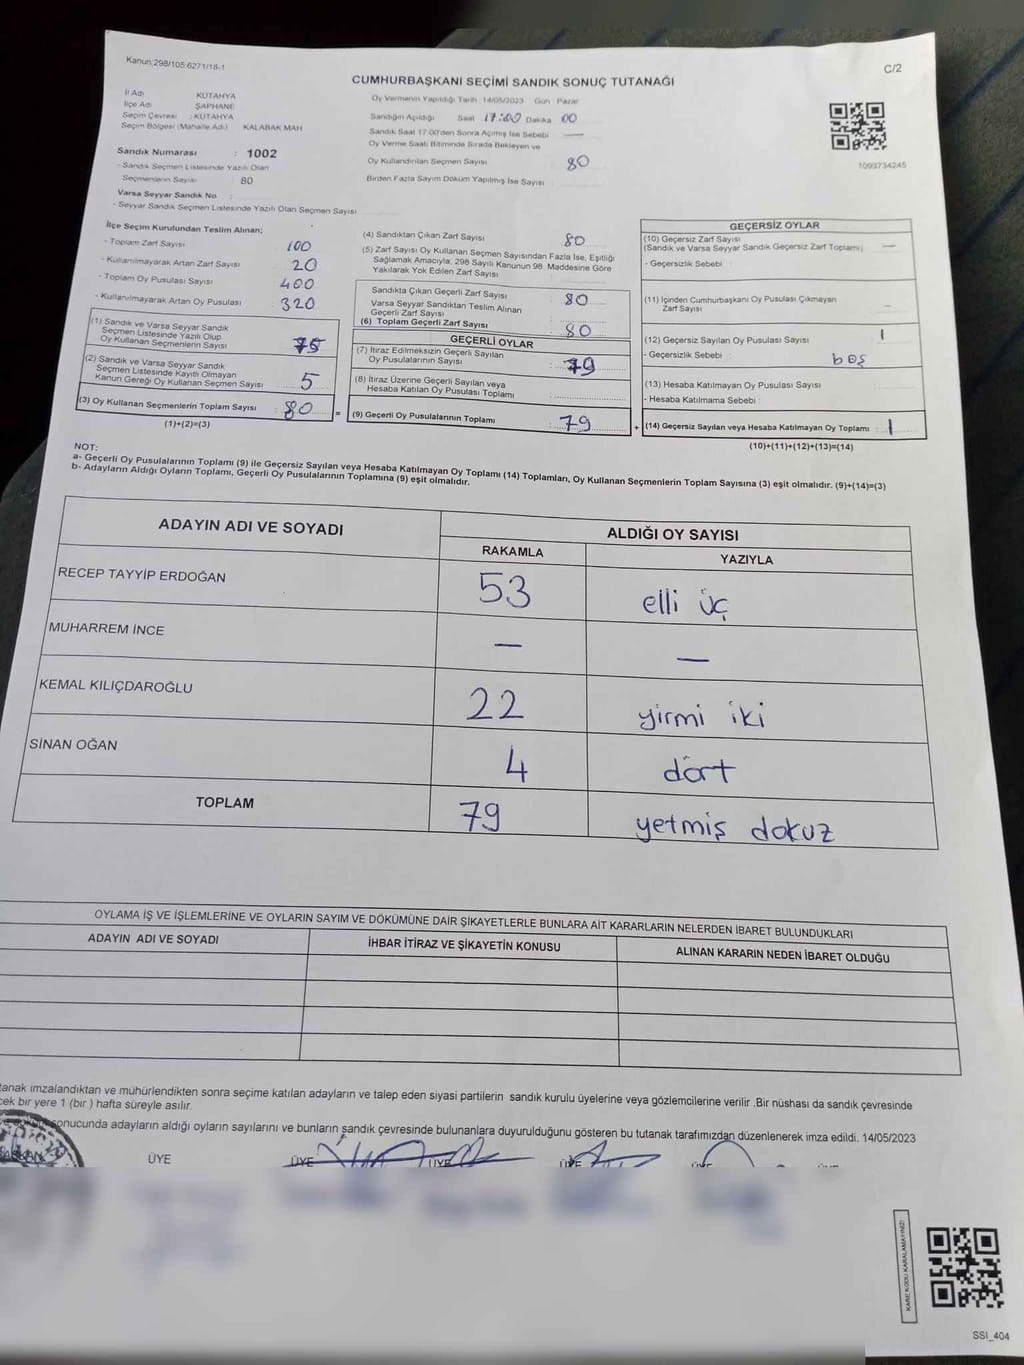 Kanun:298/105;6271/18-1
C/2
CUMHURBAŞKANI SEÇİMİ SANDIK SONUÇ TUTANAĞI
İl Adı KUTAHYA
İlçe Adı ŞAPHANE
Seçim Çevresi : KUTAHYA
Seçim Bölgesi (Mahalle Adı) KALABAK MAH
Sandık Numarası : 1002
- Sandık Seçmen Listesinde Yazılı Olan
Seçmenlerin Sayısı : 80
Varsa Seyyar Sandık No :
- Seyyar Sandık Seçmen Listesinde Yazılı Olan Seçmen Sayısı
Oy Vermenin Yapıldığı Tarih 14/05/2023 Gün Pazar
Sandığın Açıldığı Saat 17:00 Dakika 00
Sandık Saat 17:00'den Sonra Açılmış İse Sebebi —
Oy Verme Saati Bitiminde Sırada Bekleyen ve
Oy Kullandırılan Seçmen Sayısı 80
Birden Fazla Sayım Döküm Yapılmış İse Sayısı
1093734245
İlçe Seçim Kurulundan Teslim Alınan;
- Toplam Zarf Sayısı 100
- Kullanılmayarak Artan Zarf Sayısı 20
- Toplam Oy Pusulası Sayısı 400
- Kullanılmayarak Artan Oy Pusulası 320
(1) Sandık ve Varsa Seyyar Sandık
Seçmen Listesinde Yazılı Olup
Oy Kullanan Seçmenlerin Sayısı 75
(2) Sandık ve Varsa Seyyar Sandık
Seçmen Listesinde Kayıtlı Olmayan
Kanun Gereği Oy Kullanan Seçmen Sayısı 5
(3) Oy Kullanan Seçmenlerin Toplam Sayısı : 80 =
(1)+(2)=(3)
(4) Sandıktan Çıkan Zarf Sayısı 80
(5) Zarf Sayısı Oy Kullanan Seçmen Sayısından Fazla İse, Eşitliği
Sağlamak Amacıyla, 298 Sayılı Kanunun 98. Maddesine Göre
Yakılarak Yok Edilen Zarf Sayısı
Sandıkta Çıkan Geçerli Zarf Sayısı 80
Varsa Seyyar Sandıktan Teslim Alınan
Geçerli Zarf Sayısı
(6) Toplam Geçerli Zarf Sayısı 80
GEÇERLİ OYLAR
(7) İtiraz Edilmeksizin Geçerli Sayılan
Oy Pusulalarının Sayısı : 79
(8) İtiraz Üzerine Geçerli Sayılan veya
Hesaba Katılan Oy Pusulası Toplamı
(9) Geçerli Oy Pusulalarının Toplamı : 79 +
GEÇERSİZ OYLAR
(10) Geçersiz Zarf Sayısı
(Sandık ve Varsa Seyyar Sandık Geçersiz Zarf Toplamı) —
- Geçersizlik Sebebi :
(11) İçinden Cumhurbaşkanı Oy Pusulası Çıkmayan
Zarf Sayısı
(12) Geçersiz Sayılan Oy Pusulası Sayısı 1
- Geçersizlik Sebebi : boş
(13) Hesaba Katılmayan Oy Pusulası Sayısı
- Hesaba Katılmama Sebebi :
(14) Geçersiz Sayılan veya Hesaba Katılmayan Oy Toplamı : 1
(10)+(11)+(12)+(13)=(14)
NOT:
a- Geçerli Oy Pusulalarının Toplamı (9) ile Geçersiz Sayılan veya Hesaba Katılmayan Oy Toplamı (14) Toplamları, Oy Kullanan Seçmenlerin Toplam Sayısına (3) eşit olmalıdır. (9)+(14)=(3)
b- Adayların Aldığı Oyların Toplamı, Geçerli Oy Pusulalarının Toplamına (9) eşit olmalıdır.
ADAYIN ADI VE SOYADI ALDIĞI OY SAYISI
RAKAMLA YAZIYLA
RECEP TAYYİP ERDOĞAN 53 elli üç
MUHARREM İNCE — —
KEMAL KILIÇDAROĞLU 22 yirmi iki
SİNAN OĞAN 4 dört
TOPLAM 79 yetmiş dokuz
OYLAMA İŞ VE İŞLEMLERİNE VE OYLARIN SAYIM VE DÖKÜMÜNE DAİR ŞİKAYETLERLE BUNLARA AİT KARARLARIN NELERDEN İBARET BULUNDUKLARI
ADAYIN ADI VE SOYADI İHBAR İTİRAZ VE ŞİKAYETİN KONUSU ALINAN KARARIN NEDEN İBARET OLDUĞU
tanak imzalandıktan ve mühürlendikten sonra seçime katılan adayların ve talep eden siyasi partilerin sandık kurulu üyelerine veya gözlemcilerine verilir .Bir nüshası da sandık çevresinde
cek bir yere 1 (bir ) hafta süreyle asılır.
ve döküm sonucunda adayların aldığı oyların sayılarını ve bunların sandık çevresinde bulunanlara duyurulduğunu gösteren bu tutanak tarafımızdan düzenlenerek imza edildi. 14/05/2023
BAŞKAN ÜYE ÜYE ÜYE ÜYE ÜYE
KARE KODU KARALAMAYINIZ!
SSI_404